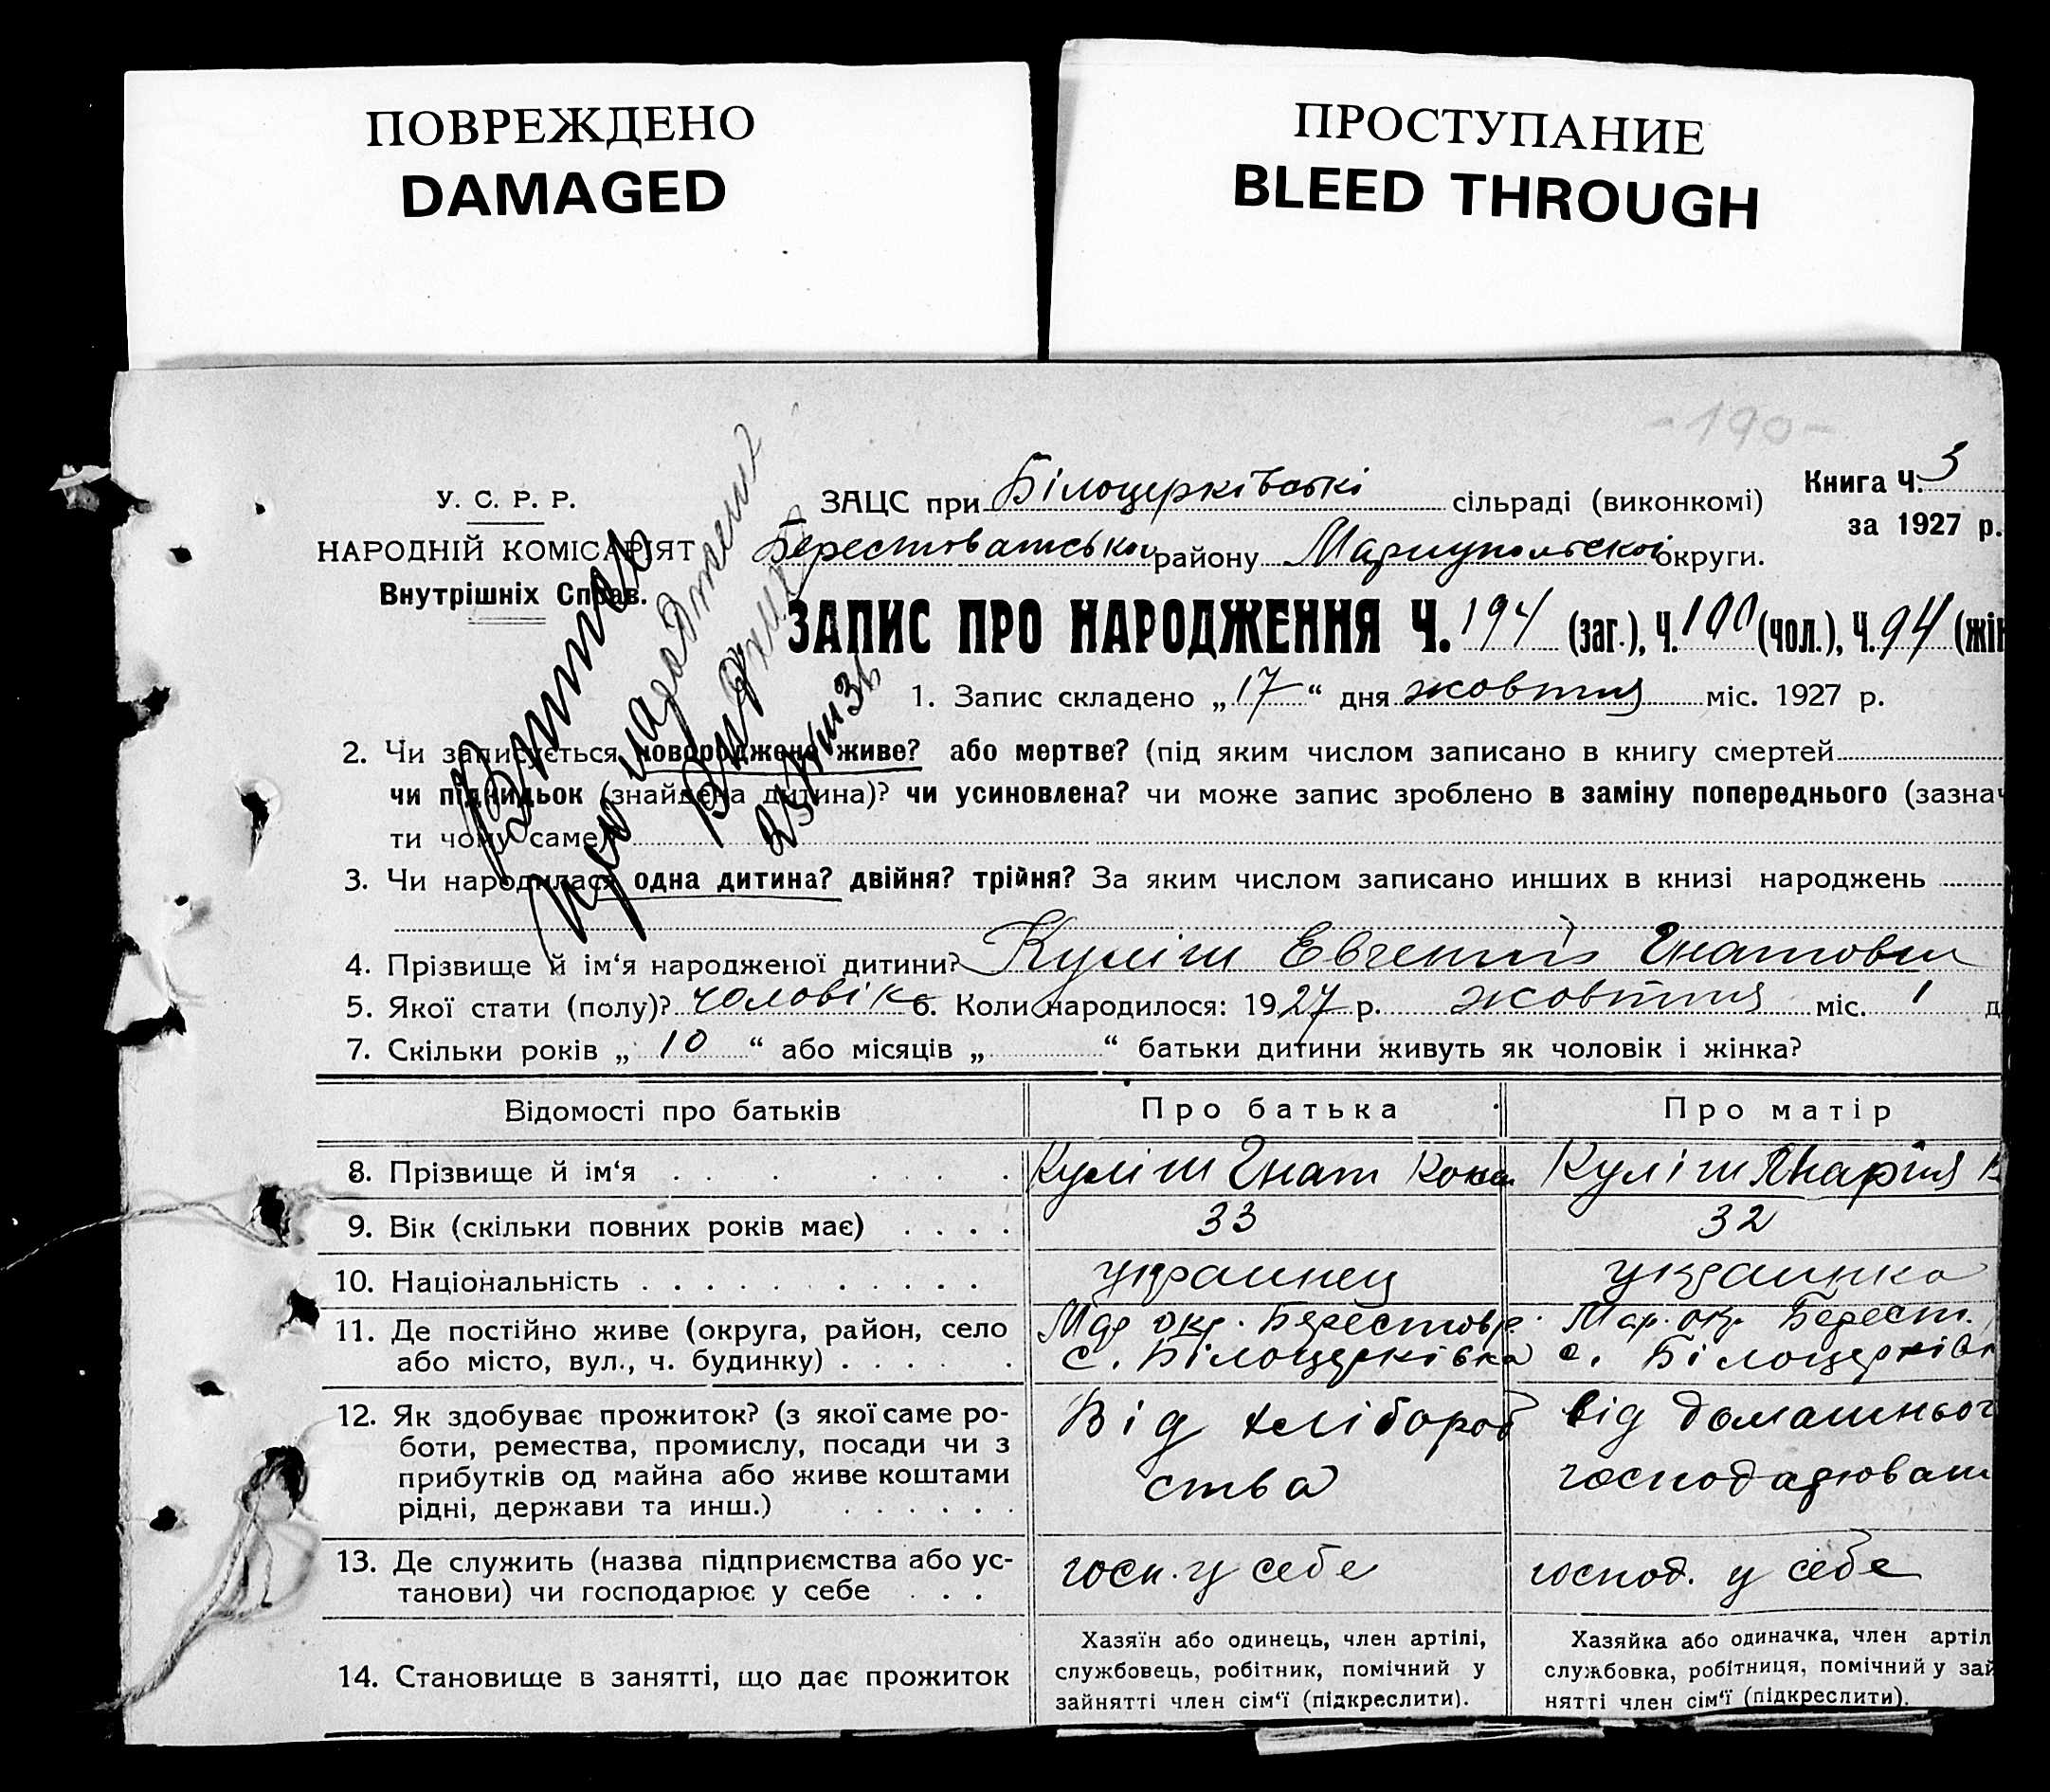 ПОВРЕЖДЕНО
DAMAGED
ПРОСТУПАНИЕ
BLEED THROUGH
-190-
У. С. Р. Р.
НАРОДНІЙ КОМІСАРІЯТ
Внутрішніх Справ.
Книга Ч. 3
за 1927 р.
ЗАЦС при Білоцерківські сільраді (виконкомі)
Берестоватської району Мариупольской округи.
ЗАПИС ПРО НАРОДЖЕННЯ Ч. 194 (заг.), Ч. 100 (чол.), Ч. 94 (жін
1. Запис складено „17“ дня жовтня міс. 1927 р.
2. Чи записується новороджене живе? або мертве? (під яким числом записано в книгу смертей
чи підкидьок (знайдена дитина)? чи усиновлена? чи може запис зроблено в заміну попереднього (зазнач
ти чому саме)
3. Чи народилася одна дитина? двійня? трійня? За яким числом записано инших в книзі народжень
4. Прізвище й ім‘я народженої дитини? Куліш Евгений Гнатович
5. Якої стати (полу)? чоловік 6. Коли народилося: 1927 р. жовтня міс. 1 д
7. Скільки років „ 10 “ або місяців „ “ батьки дитини живуть як чоловік і жінка?
Відомості про батьків
Про батька
Про матір
8. Прізвище й ім‘я
Куліш Гнат
Куліш Марія
9. Вік (скільки повних років має)
33
32
10. Національність
украинец
украинка
11. Де постійно живе (округа, район, село
або місто, вул., ч. будинку)
Мар окр. Берестов р.
с. Білоцерківка
Мар. окр. Берест.
с. Білоцерків
12. Як здобуває прожиток? (з якої саме ро-
боти, ремества, промислу, посади чи з
прибутків од майна або живе коштами
рідні, держави та инш.)
Від хлібороб
ства
від домашньог
господарюван
13. Де служить (назва підприємства або ус-
танови) чи господарює у себе
госп. у себе
господ. у себе
14. Становище в занятті, що дає прожиток
Хазяїн або одинець, член артілі,
службовець, робітник, помічний у
зайнятті член сім‘ї (підкреслити).
Хазяйка або одиначка, член артіл
службовка, робітниця, помічний у зай
нятті член сім‘ї (підкреслити).